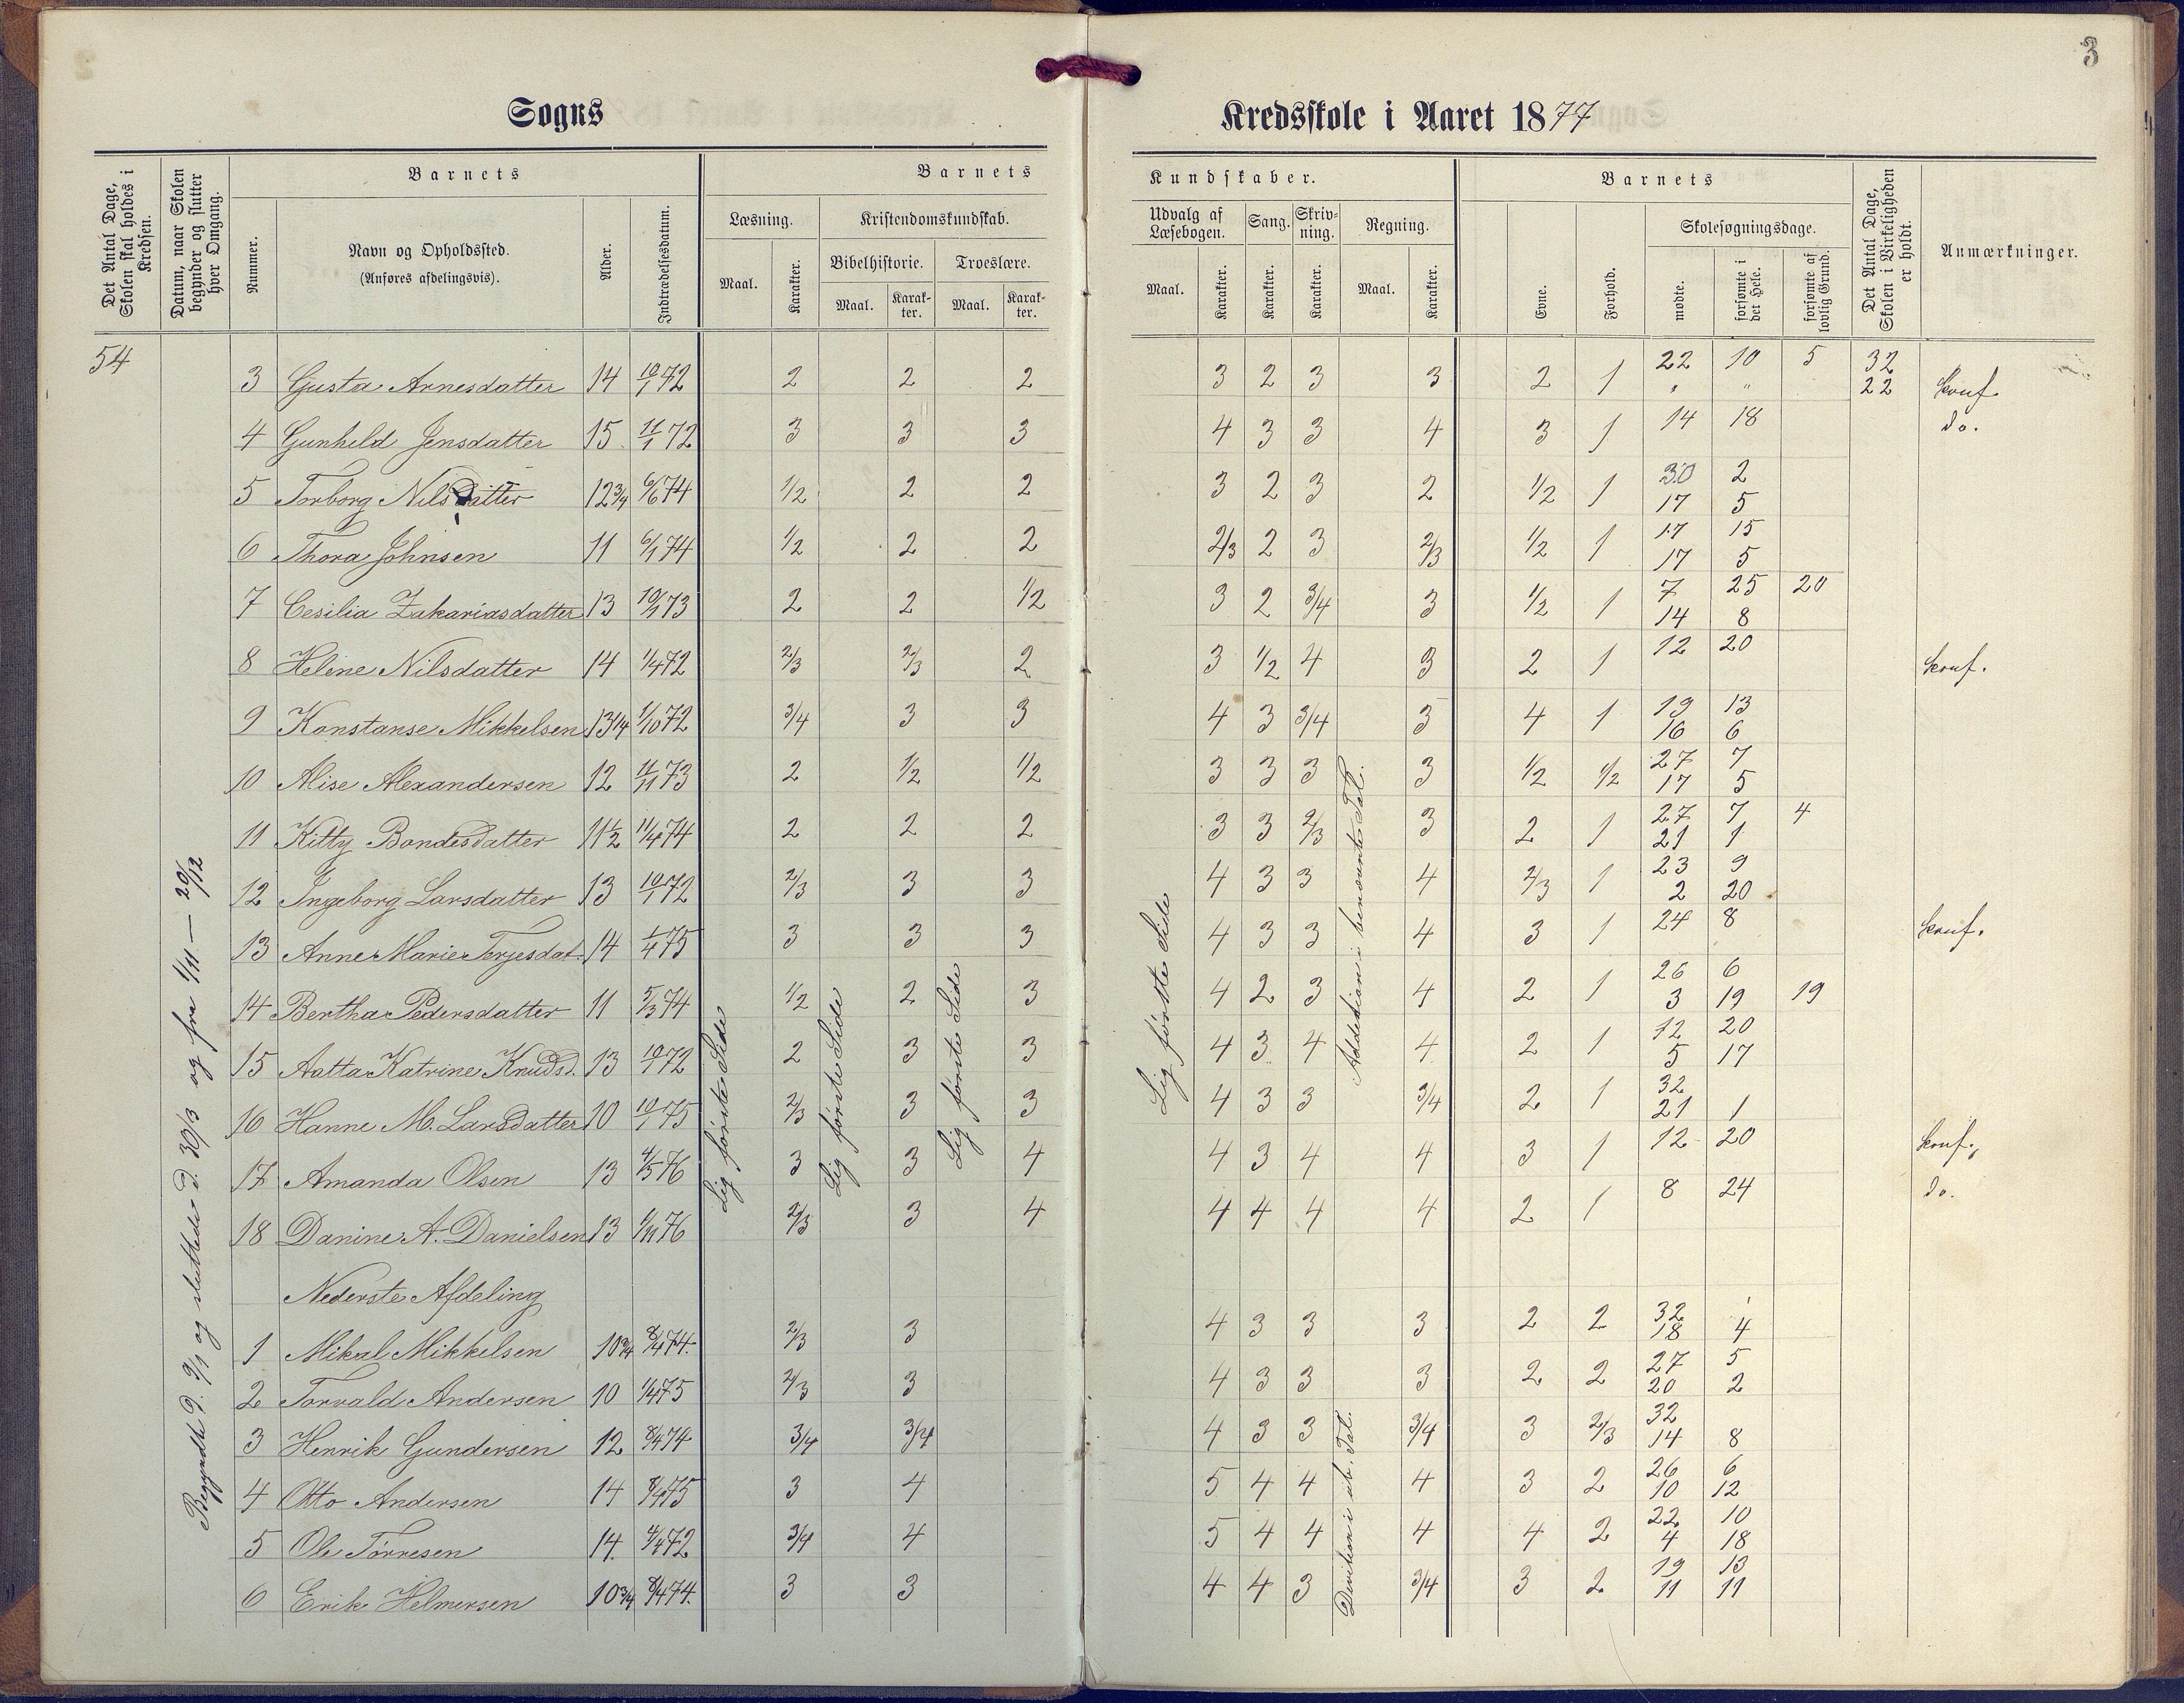 3
Sogns
Kredsskole i Aaret 1877
Det Antal Dage, Skolen skal holdes i Kredsen.
Datum, naar Skolen begynder og slutter hver Omgang.
Barnets
Nummer.
Navn og Opholdssted.
(Anføres afdelingsvis).
Alder.
Indtrædelsesdatum.
Barnets
Læsning.
Maal.
Karakter.
Kristendomskundskab.
Bibelhistorie.
Maal.
Karak-
ter.
Troeslære.
Maal.
Karak-
ter.
Kundskaber.
Udvalg af
Læsebogen.
Maal.
Karakter.
Sang.
Karakter.
Skriv-
ning.
Karakter.
Regning.
Maal.
Karakter.
Barnets
Evne.
Forhold.
Skolesøgningsdage.
mødte.
forsømte i det Hele.
forsømte af lovlig Grund.
Det Antal Dage, Skolen i Virkeligheden er holdt.
Anmærkninger.
54
Begyndte d. 9/1 og sluttede d. 30/3 og fra 1/11 — 20/12
Lig første Side
Lig første Side
Lig første Side
Lig første Side
Addition i benævnte Tal.
Division i ub. Tal.
3 Gusta Arnesdatter 14 10/1 72 2 2 2 3 2 3 3 2 1 22 10 5 32
" " 22 konf.
4 Gunhild Jensdatter 15 11/1 72 3 3 3 4 3 3 4 3 1 14 18 do.
5 Torborg Nilsdatter 12 3/4 6/6 74 1/2 2 2 3 2 3 2 1/2 1 30 2
17 5
6 Thora Johnsen 11 6/1 74 1/2 2 2 2/3 2 3 2/3 1/2 1 17 15
17 5
7 Cesilia Zakariasdatter 13 10/1 73 2 2 1/2 3 2 3/4 3 1/2 1 7 25 20
14 8
8 Heline Nilsdatter 14 1/4 72 2/3 2/3 2 3 1/2 4 3 2 1 12 20 konf.
9 Konstanse Mikkelsen 13 1/4 1/10 72 3/4 3 3 4 3 3/4 3 4 1 19 13
16 6
10 Alise Alexandersen 12 11/11 73 2 1/2 1/2 3 3 3 3 1/2 1/2 27 7
17 5
11 Kitty Bondesdatter 11 1/2 11/4 74 2 2 2 3 3 2/3 3 2 1 27 7 4
21 1
12 Ingeborg Larsdatter 13 10/1 72 2/3 3 3 4 3 3 4 2/3 1 23 9
2 20
13 Anne Marie Terjesdat. 14 1/4 75 3 3 3 4 3 3 4 3 1 24 8 konf.
14 Bertha Pedersdatter 11 5/3 74 1/2 2 3 4 2 3 4 2 1 26 6
3 19 19
15 Aatta Katrine Knudsd. 13 10/1 72 2 3 3 4 3 4 4 2 1 12 20
5 17
16 Hanne M. Larsdatter 10 10/1 75 2/3 3 3 4 3 3 3/4 2 1 32
21 1
17 Amanda Olsen 13 4/5 76 3 3 4 4 3 4 4 3 1 12 20 konf.
18 Danine A. Danielsen 13 1/11 76 2/3 3 4 4 4 4 4 2 1 8 24 do.
Nederste Afdeling
1 Mikal Mikkelsen 10 3/4 8/4 74. 2/3 3 4 3 3 3 2 2 32
18 4
2 Torvald Andersen 10 1/4 75 2/3 3 4 3 3 3 2 2 27 5
20 2
3 Henrik Gundersen 12 8/4 74 3/4 3/4 4 3 3 3/4 3 2/3 32
14 8
4 Otto Andersen 14 8/4 75 3 4 5 4 4 4 3 2 26 6
10 12
5 Ole Tørresen 14. 4/4 72 3/4 4 5 4 4 4 4 2 22 10
4 18
6 Erik Helmersen 10 3/4 8/4 74. 3 3 4 4 3 3/4 3 2 19 13
11 11